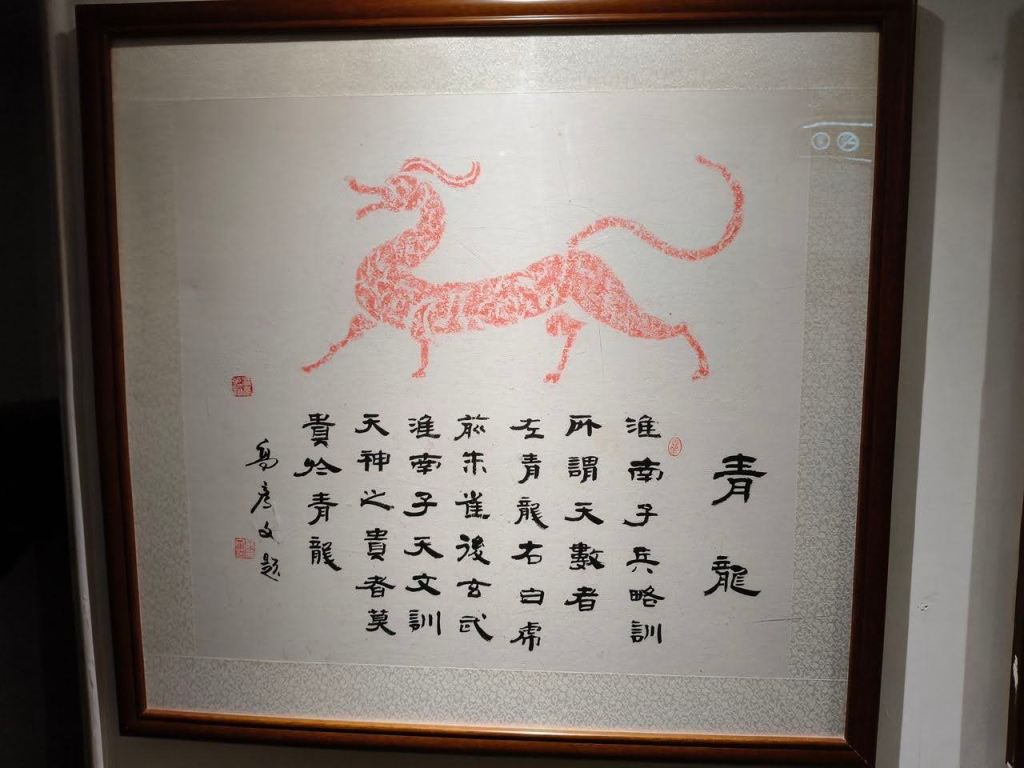 青龍
淮南子兵略訓
所謂天數者
左青龍右白虎
前朱雀後玄武
淮南子天文訓
天神之貴者莫
貴於青龍
彥文題